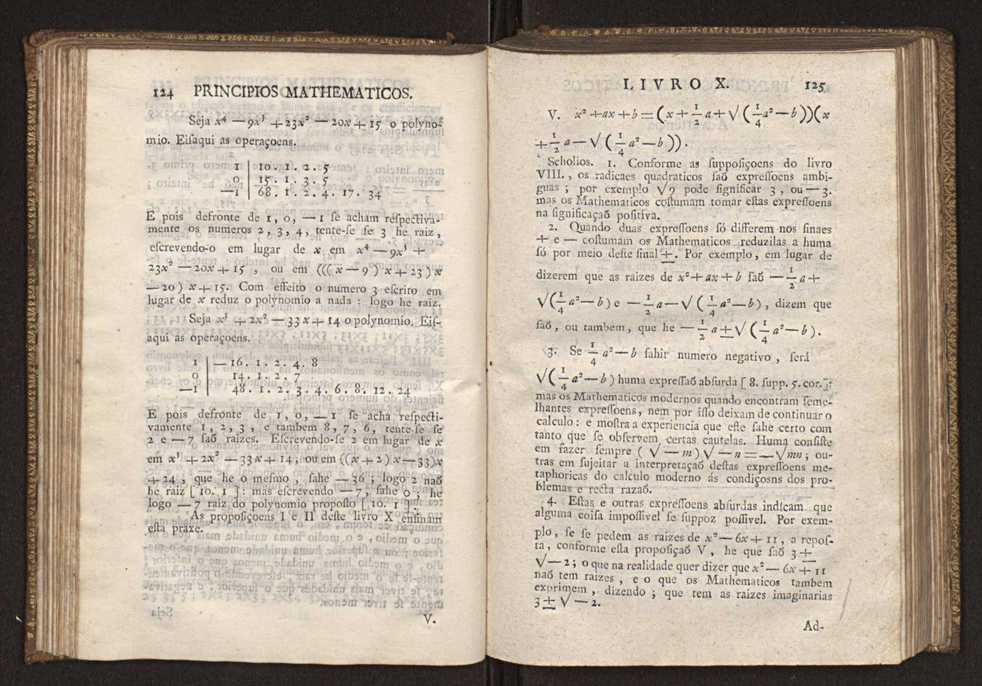 124 PRINCIPIOS MATHEMATICOS.
Seja x⁴ — 9x³ + 23x² — 20x + 15 o polyno-
mio. Eiſaqui as operaçoens.
1 | 10. 1. 2. 5
0 | 15. 1. 3. 5
—1 | 68. 1. 2. 4. 17. 34
E pois defronte de 1, 0, — 1 ſe acham reſpectiva-
mente os numeros 2, 3, 4, tente-ſe ſe 3 he raiz,
eſcrevendo-o em lugar de x em x⁴ — 9x³ +
23x² — 20x + 15, ou em (((x — 9) x + 23) x
— 20) x + 15. Com effeito o numero 3 eſcrito em
lugar de x reduz o polynomio a nada: logo he raiz.
Seja x³ + 2x² — 33 x + 14 o polynomio. Eiſ-
aqui as operaçoens.
1 | — 16. 1. 2. 4. 8
0 | 14. 1. 2. 7
—1 | 48. 1. 2. 3. 4. 6. 8. 12. 24
E pois defronte de 1, 0, — 1 ſe acha reſpecti-
vamente 1, 2, 3, e tambem 8, 7, 6, tente-ſe ſe
2 e — 7 ſaõ raizes. Eſcrevendo-ſe 2 em lugar de x
em x³ + 2x² — 33 x + 14, ou em ((x + 2) x — 33)x
+ 24, que he o meſmo, ſahe — 36; logo 2 naõ
he raiz [10. 1]: mas eſcrevendo — 7, ſahe 0; he
logo — 7 raiz do polynomio propoſto [10. 1].
As propoſiçoens I e II deſte livro X enſinam
eſta praxe.
V.
LIVRO X. 125
V. x² + ax + b = (x + 1/2 a + √(1/4 a² — b))(x
+ 1/2 a — √(1/4 a² — b)).
Scholios. 1. Conforme as ſuppoſiçoens do livro
VIII., os radicaes quadraticos ſaõ expreſſoens ambi-
guas; por exemplo √9 pode ſignificar 3, ou — 3.
mas os Mathematicos coſtumam tomar eſtas expreſſoens
na ſignificaçaõ poſitiva.
2. Quando duas expreſſoens ſó differem nos ſinaes
+ e — coſtumam os Mathematicos reduzilas a huma
ſó por meio deſte ſinal ±. Por exemplo, em lugar de
dizerem que as raizes de x² + ax + b ſaõ — 1/2 a +
√(1/4 a² — b) e — 1/2 a — √(1/4 a² — b), dizem que
ſaõ, ou tambem, que he — 1/2 a ± √(1/4 a² — b).
3. Se 1/4 a² — b ſahir numero negativo, ſerá
√(1/4 a² — b) huma expreſſaõ abſurda [8. ſupp. 5. cor.]:
mas os Mathematicos modernos quando encontram ſeme-
lhantes expreſſoens, nem por iſſo deixam de continuar o
calculo: e moſtra a experiencia que eſte ſahe certo com
tanto que ſe obſervem certas cautelas. Huma conſiſte
em fazer ſempre (√ — m) √ — n = — √mn; ou-
tras em ſujeitar a interpretaçaõ deſtas expreſſoens me-
taphoricas do calculo moderno ás condiçosns dos pro-
blemas e recta razaõ.
4. Eſtas e outras expreſſoens abſurdas indicam que
alguma coiſa impoſſivel ſe ſuppoz poſſivel. Por exem-
plo, ſe ſe pedem as raizes de x² — 6x + 11, a repoſ-
ta, conforme eſta propoſiçaõ V, he que ſaõ 3 ±
√ — 2; o que na realidade quer dizer que x² — 6x + 11
naõ tem raizes, e o que os Mathematicos tambem
exprimem, dizendo; que tem as raizes imaginarias
3 ± √ — 2.
Ad-